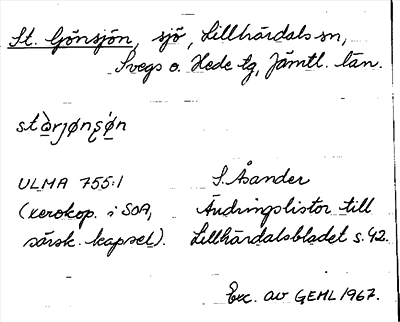 St. Gönsjön, sjö, Lillhärdals sn,
Svegs o. Hede tg, Jämtl. län.
stòrjønʂǿn
ULMA 755:1 S. Åsander
(xerokop. i SOA, Ändringslistor till
särsk. kapsel). Lillhärdalsbladet s. 42.
Exc. av GEHL 1967.